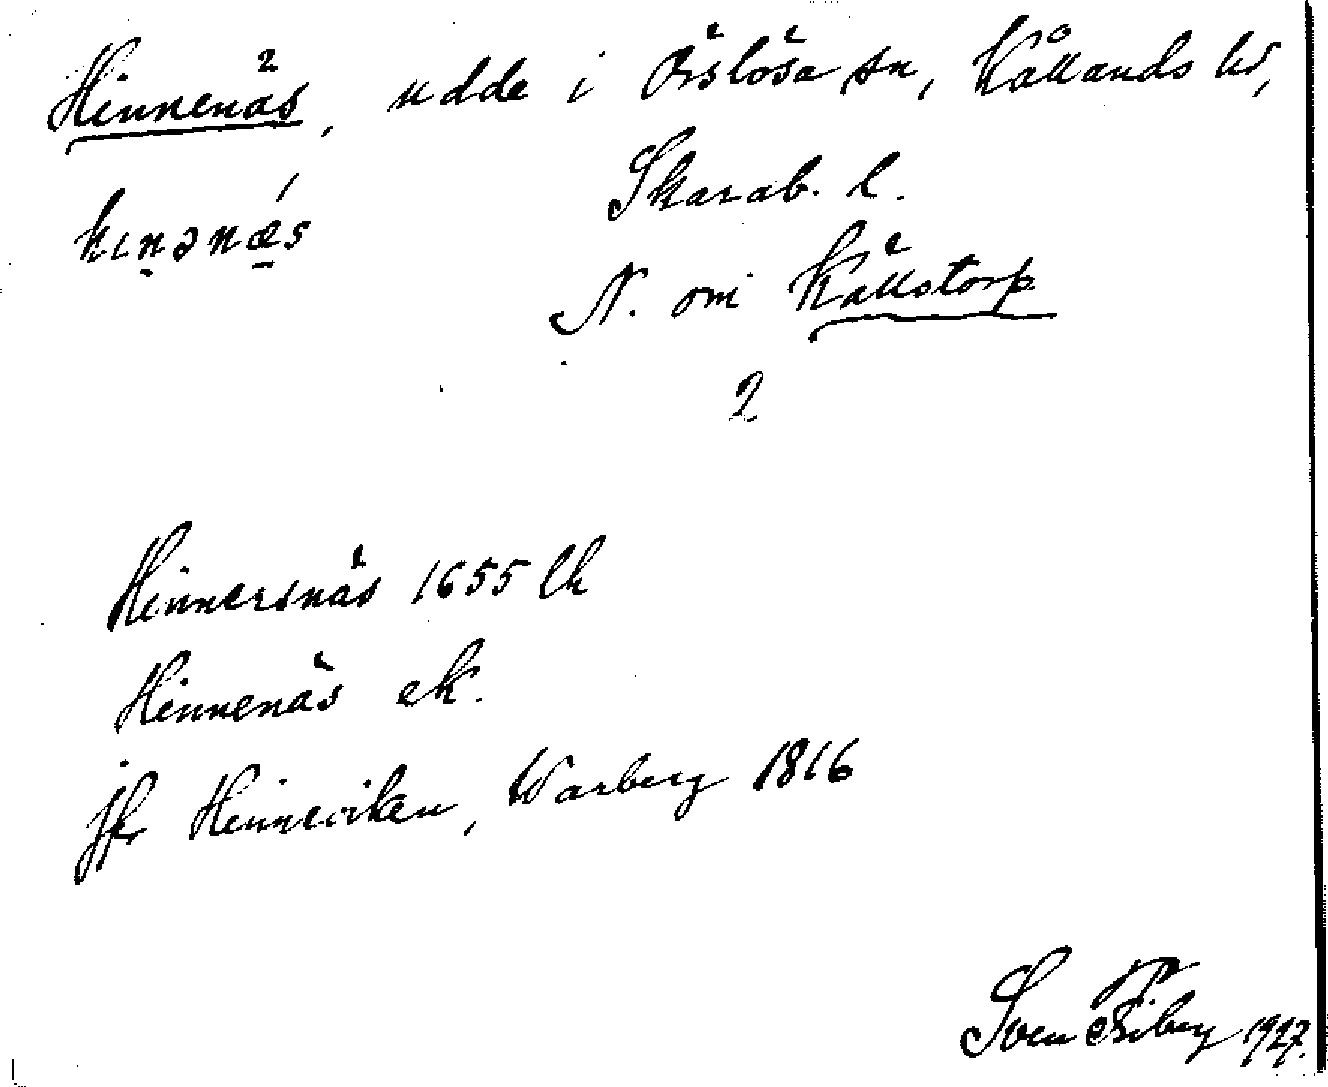 Hinnenäs, udde i Örslösa sn, Kållands hd,
Skarab. l.
hinənǽs
N. om Källstorp
2
Hinnersnäs 1655 lk
Hinnenäs ek.
jfr Hinneviken, Warberg 1816
Sven Friberg 1927.